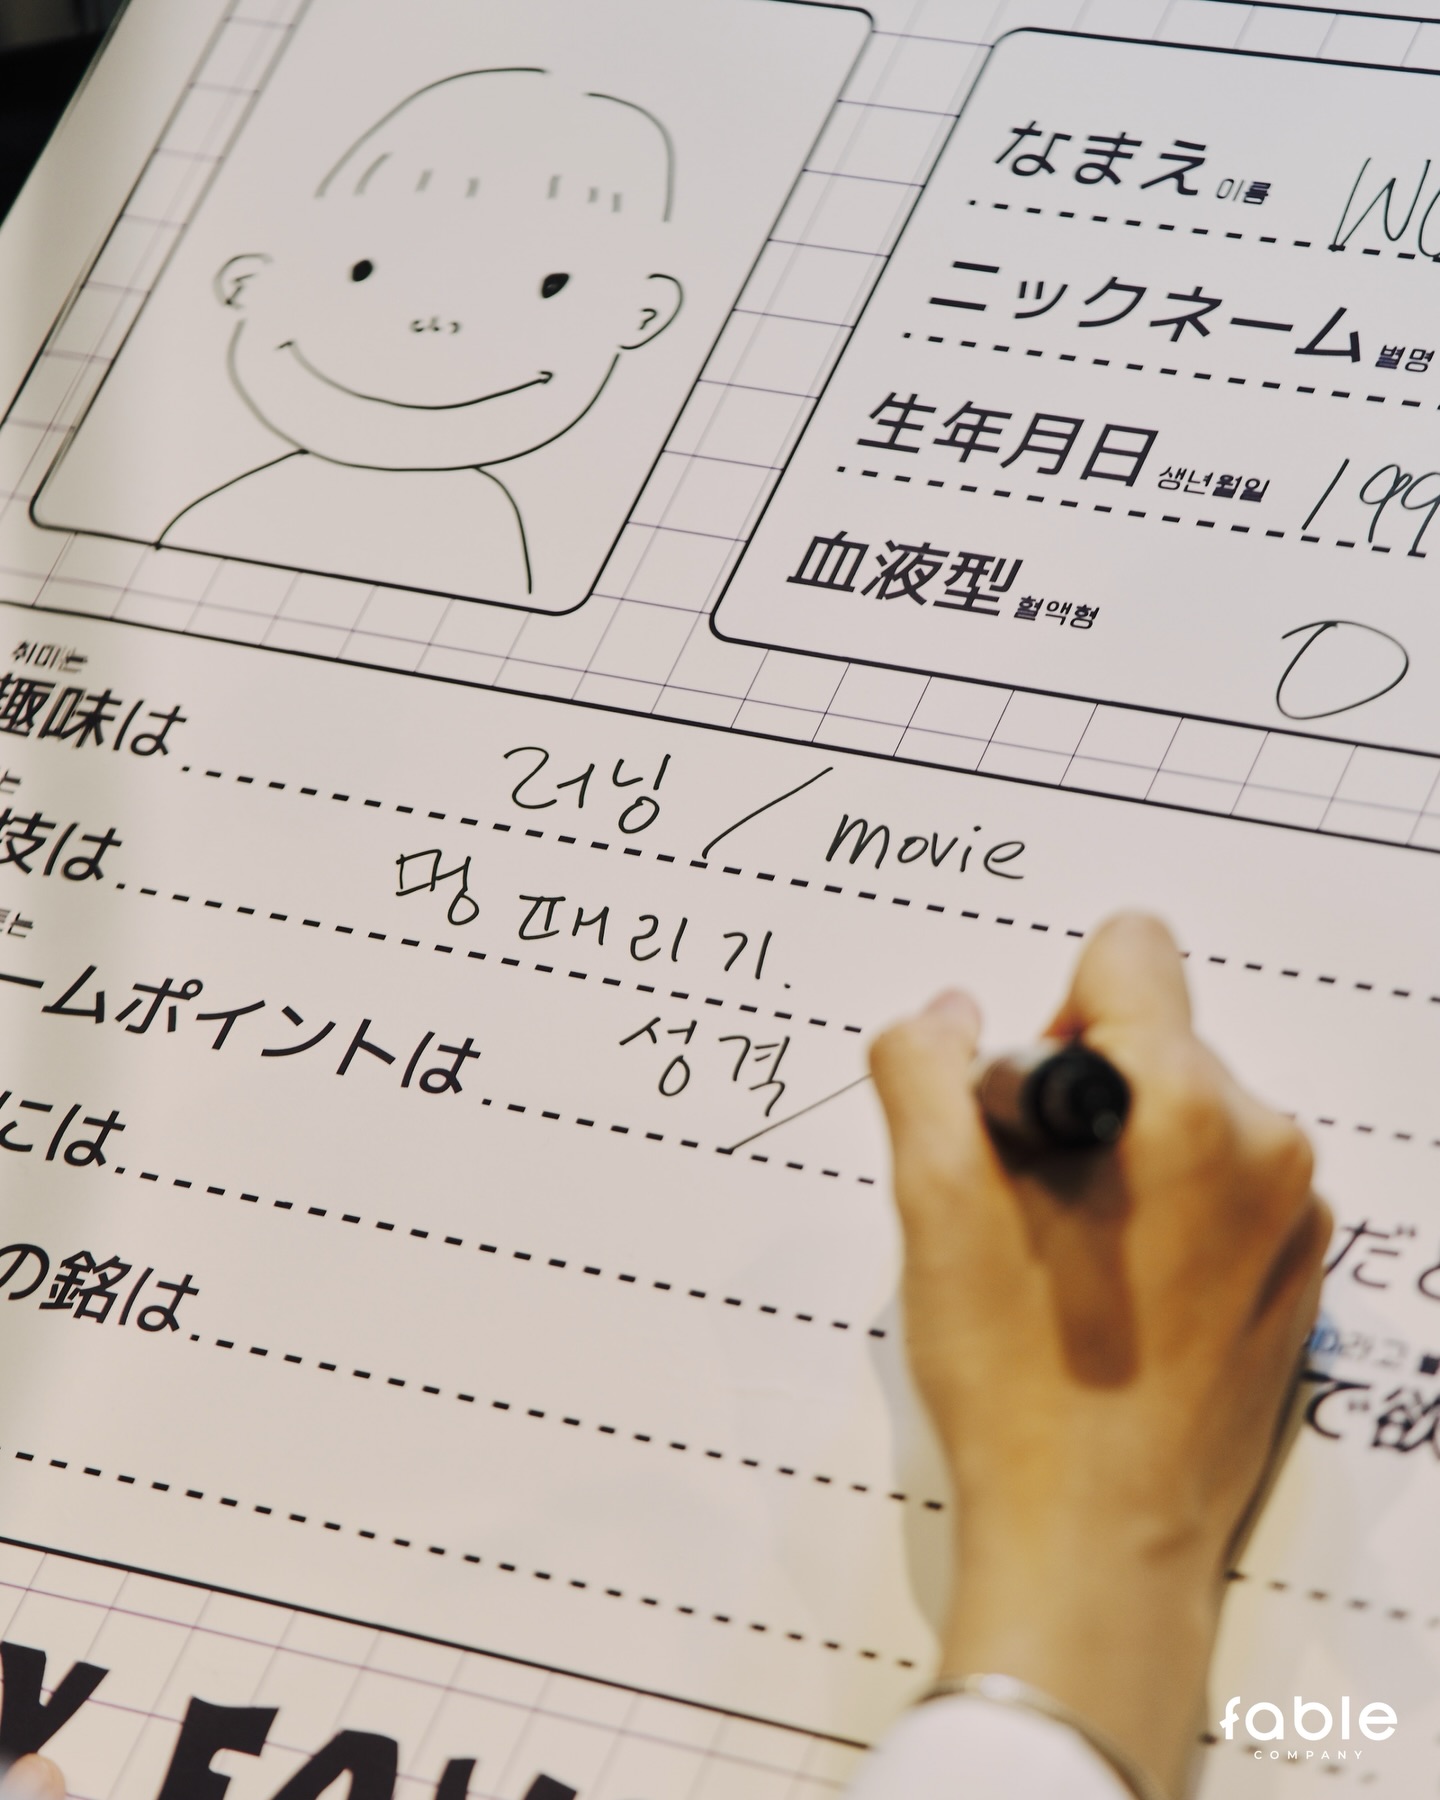 なまえ 이름
ニックネーム 별명
生年月日 생년월일 199
血液型 혈액형 O
취미는
趣味は 러닝 / movie
技は 멍 때리기.
ームポイントは 성격 /
には
の銘は
だと
で欲
fable
COMPANY